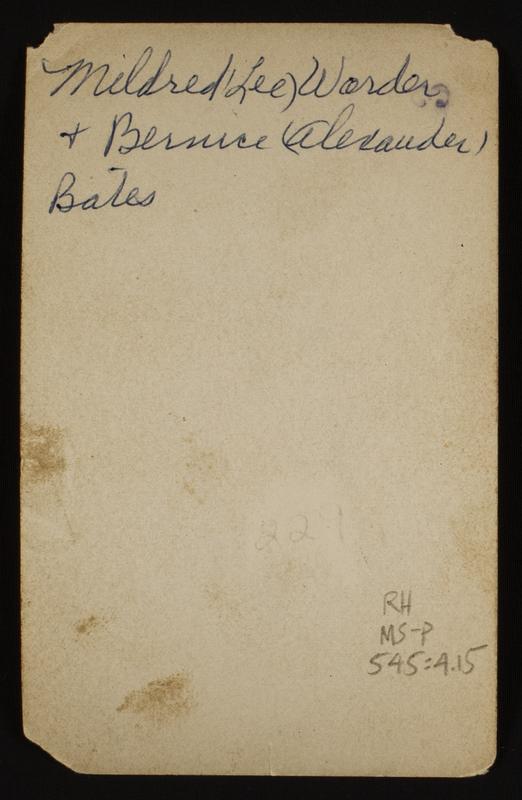 Mildred (Lee) Worder
+ Bernice (Alexander)
Bates
221
RH
MS-P
545:4.15